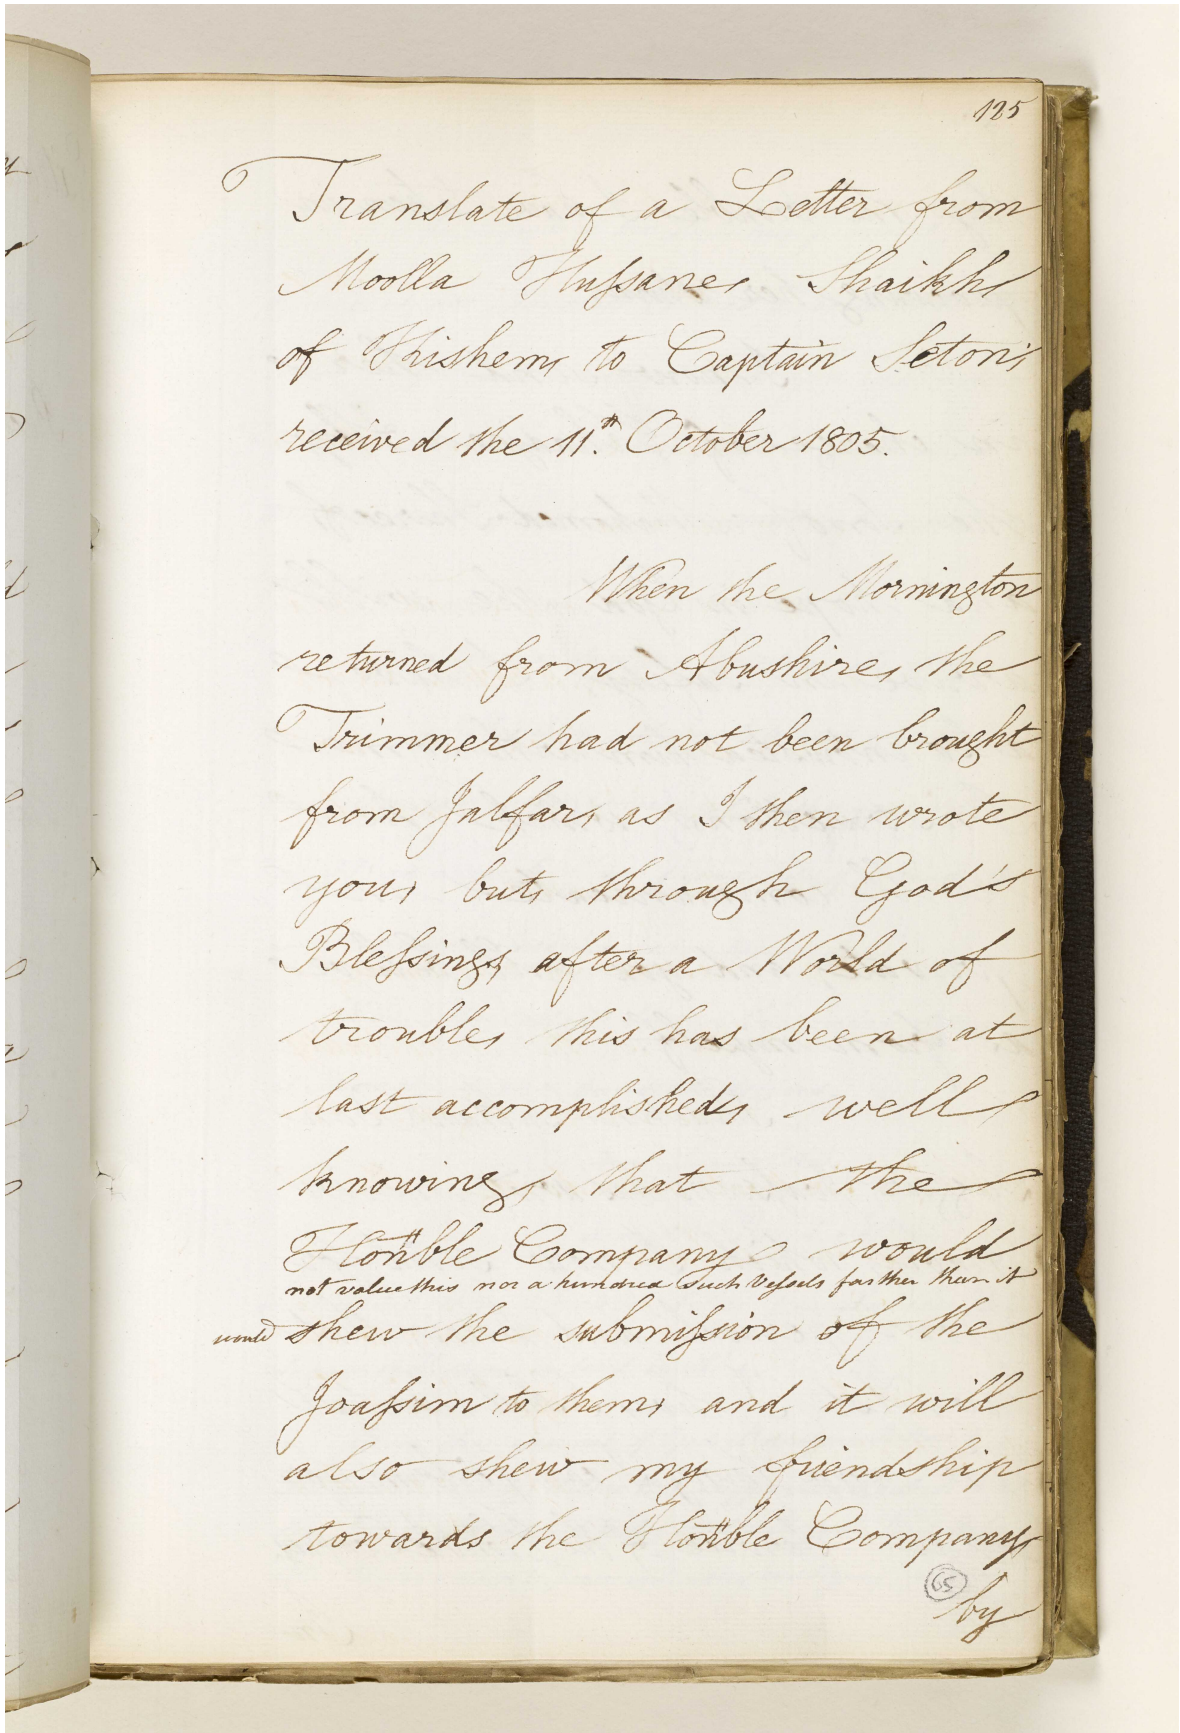 125
Translate of a Letter from
Moolla Hussane, Shaikh,
of Kishem, to Captain Seton,
received the 11th October 1805.
When the Mornington
returned from Abushire, the
Trimmer had not been brought
from Jalfar, as I then wrote
you, but, through God's
Blessings, after a World of
trouble, this has been at
last accomplished, well
knowing, that the
Honble Company would
not value this nor a hundred such Vessels farther than it
would shew the submission of the
Joassim to them, and it will
also shew my friendship
towards the Honble Company,
65
by